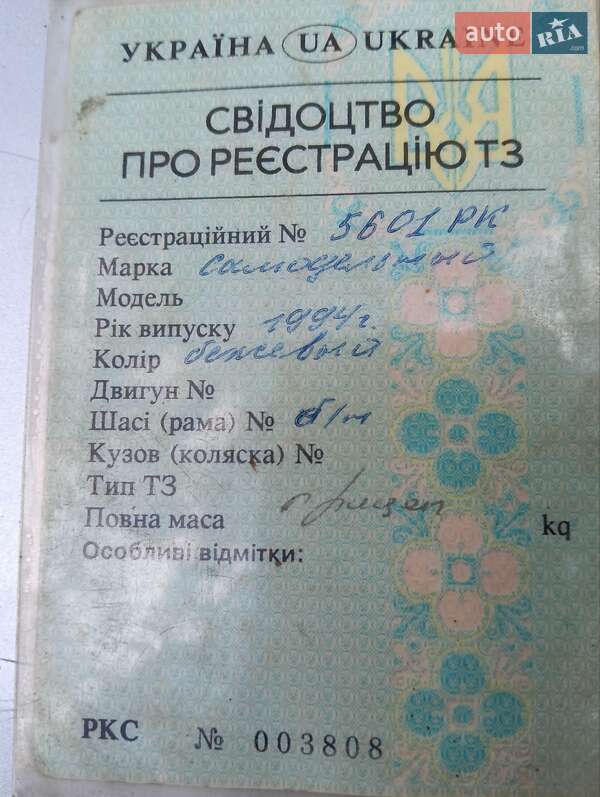 auto RIA .com
УКРАЇНА UA UKRAINE
СВІДОЦТВО
ПРО РЕЄСТРАЦІЮ ТЗ
Реєстраційний № 5601 РК
Марка Самодельный
Модель
Рік випуску 1994г.
Колір бежевый
Двигун №
Шасі (рама) № б/н
Кузов (коляска) №
Тип ТЗ прицеп
Повна маса kq
Особливі відмітки:
РКС № 003808